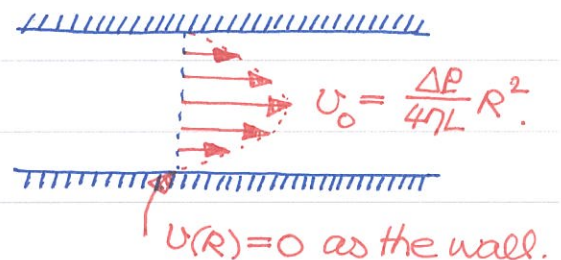 υ₀ = ΔP/4ηL R².
υ(R)=0 as the wall.